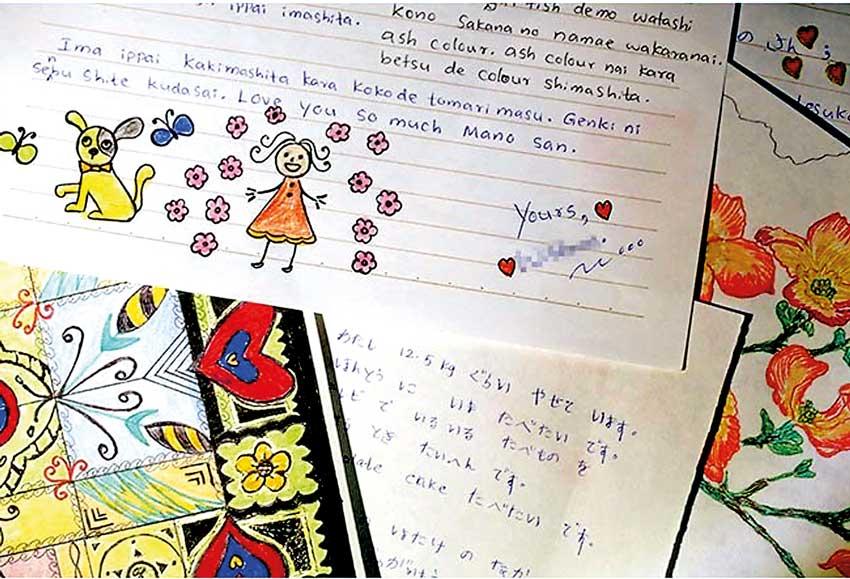 ippai imashita.
fish demo watashi
kono sakana no namae wakaranai.
ash colour. ash colour nai kara
betsu de colour shimashita.
Ima ippai kakimashita kara koko de tomarimasu. Genki ni
senpu shite kudasai. Love you so much Mano san.
Yours,
わたし 12.5 kg ぐらい やせて います。
ほんとう に いま たべたい です。
で いるいる たべもの を
とき たいへん です。
cake たべたい です。
はたけ の なか
の